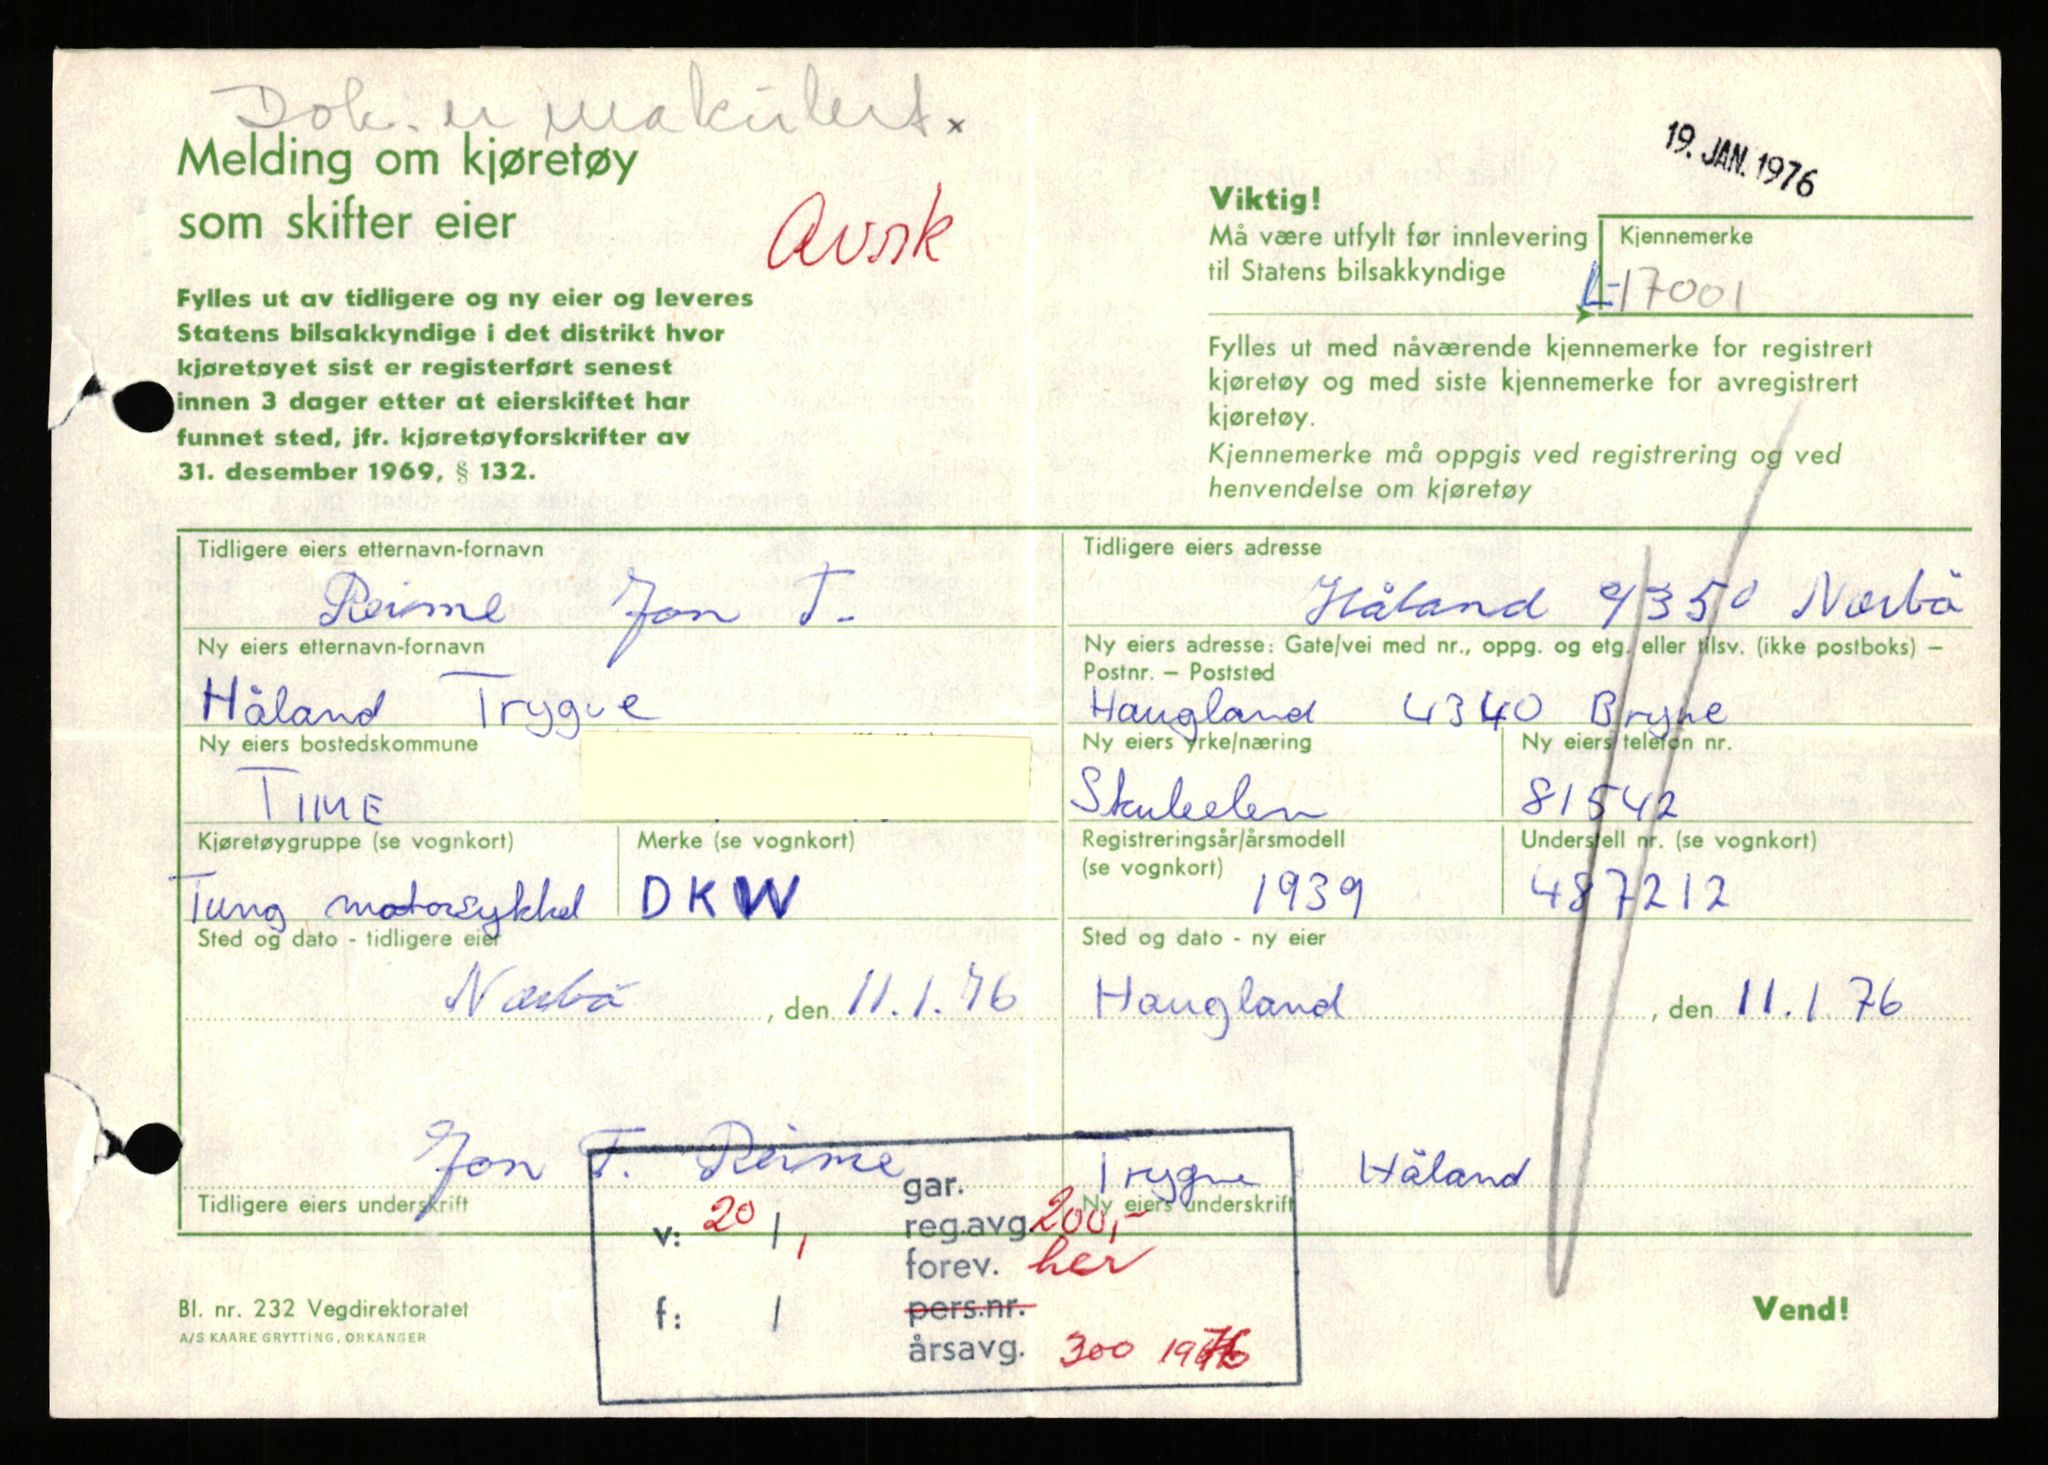 Dok. er makulert.
19. JAN. 1976
Melding om kjøretøy
som skifter eier
Avsk
Fylles ut av tidligere og ny eier og leveres
Statens bilsakkyndige i det distrikt hvor
kjøretøyet sist er registerført senest
innen 3 dager etter at eierskiftet har
funnet sted, jfr. kjøretøyforskrifter av
31. desember 1969, § 132.
Viktig!
Må være utfylt før innlevering
til Statens bilsakkyndige
Kjennemerke
L-17001
Fylles ut med nåværende kjennemerke for registrert
kjøretøy og med siste kjennemerke for avregistrert
kjøretøy.
Kjennemerke må oppgis ved registrering og ved
henvendelse om kjøretøy
Tidligere eiers etternavn-fornavn
Reime Jon T.
Tidligere eiers adresse
Håland 4350 Nærbø
Ny eiers etternavn-fornavn
Håland Trygve
Ny eiers adresse: Gate/vei med nr., oppg. og etg. eller tilsv. (ikke postboks) –
Postnr. – Poststed
Haugland 4340 Bryne
Ny eiers bostedskommune
TIME
Ny eiers yrke/næring
Skuleelev
Ny eiers telefon nr.
81542
Kjøretøygruppe (se vognkort)
Tung motorsykkel
Merke (se vognkort)
DKW
Registreringsår/årsmodell
(se vognkort)
1939
Understell nr. (se vognkort)
487212
Sted og dato - tidligere eier
Nærbø, den 11.1.76
Sted og dato - ny eier
Haugland, den 11.1.76
Jon T. Reime
Tidligere eiers underskrift
Trygve Håland
Ny eiers underskrift
gar.
v: 20/1,
reg.avg. 200,-
forev. her
f: /
pers.nr.
årsavg. 300 1976
Bl. nr. 232 Vegdirektoratet
A/S KAARE GRYTTING, ORKANGER
Vend!